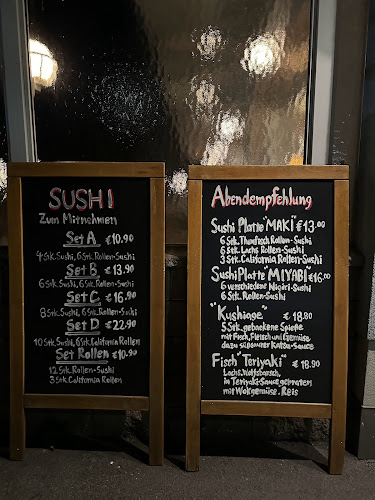 SUSHI
Zum Mitnehmen
Set A €10.90
4 Stk. Sushi, 6 Stk. Rollen-Sushi
Set B €13.90
6 Stk. Sushi, 6 Stk. Rollen-Sushi
Set C €16.90
8 Stk. Sushi, 6 Stk. Rollen-Sushi
Set D €22.90
10 Stk. Sushi, 6 Stk. California Rollen
Set Rollen €10.90
12 Stk. Rollen-Sushi
3 Stk. California Rollen
Abendempfehlung
Sushi Platte "MAKI" €13.00
6 Stk. Thunfisch Rollen-Sushi
6 Stk. Lachs Rollen-Sushi
3 Stk. California Rollen-Sushi
Sushi Platte "MIYABI" €16.00
6 verschiedene Nigiri-Sushi
6 Stk. Rollen-Sushi
"Kushiage" €18.90
5 Stk. gebackene Spieße
mit Fisch, Fleisch und Gemüse
dazu süßsaurer Katsu-Sauce
Fisch "Teriyaki" €18.90
Lachs, Wolfsbarsch,
in Teriyaki-Sauce gebraten
mit Wokgemüse. Reis